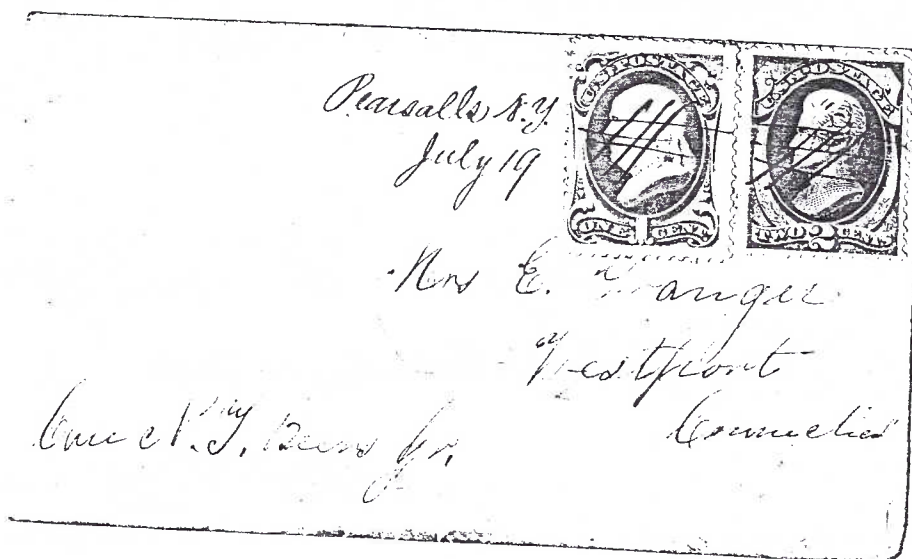 Pearsalls N.Y.
July 19
U.S. POSTAGE
ONE 1 CENT
U.S. POSTAGE
TWO 2 CENTS
Mrs E.
Westport
Connecticut
Jr.